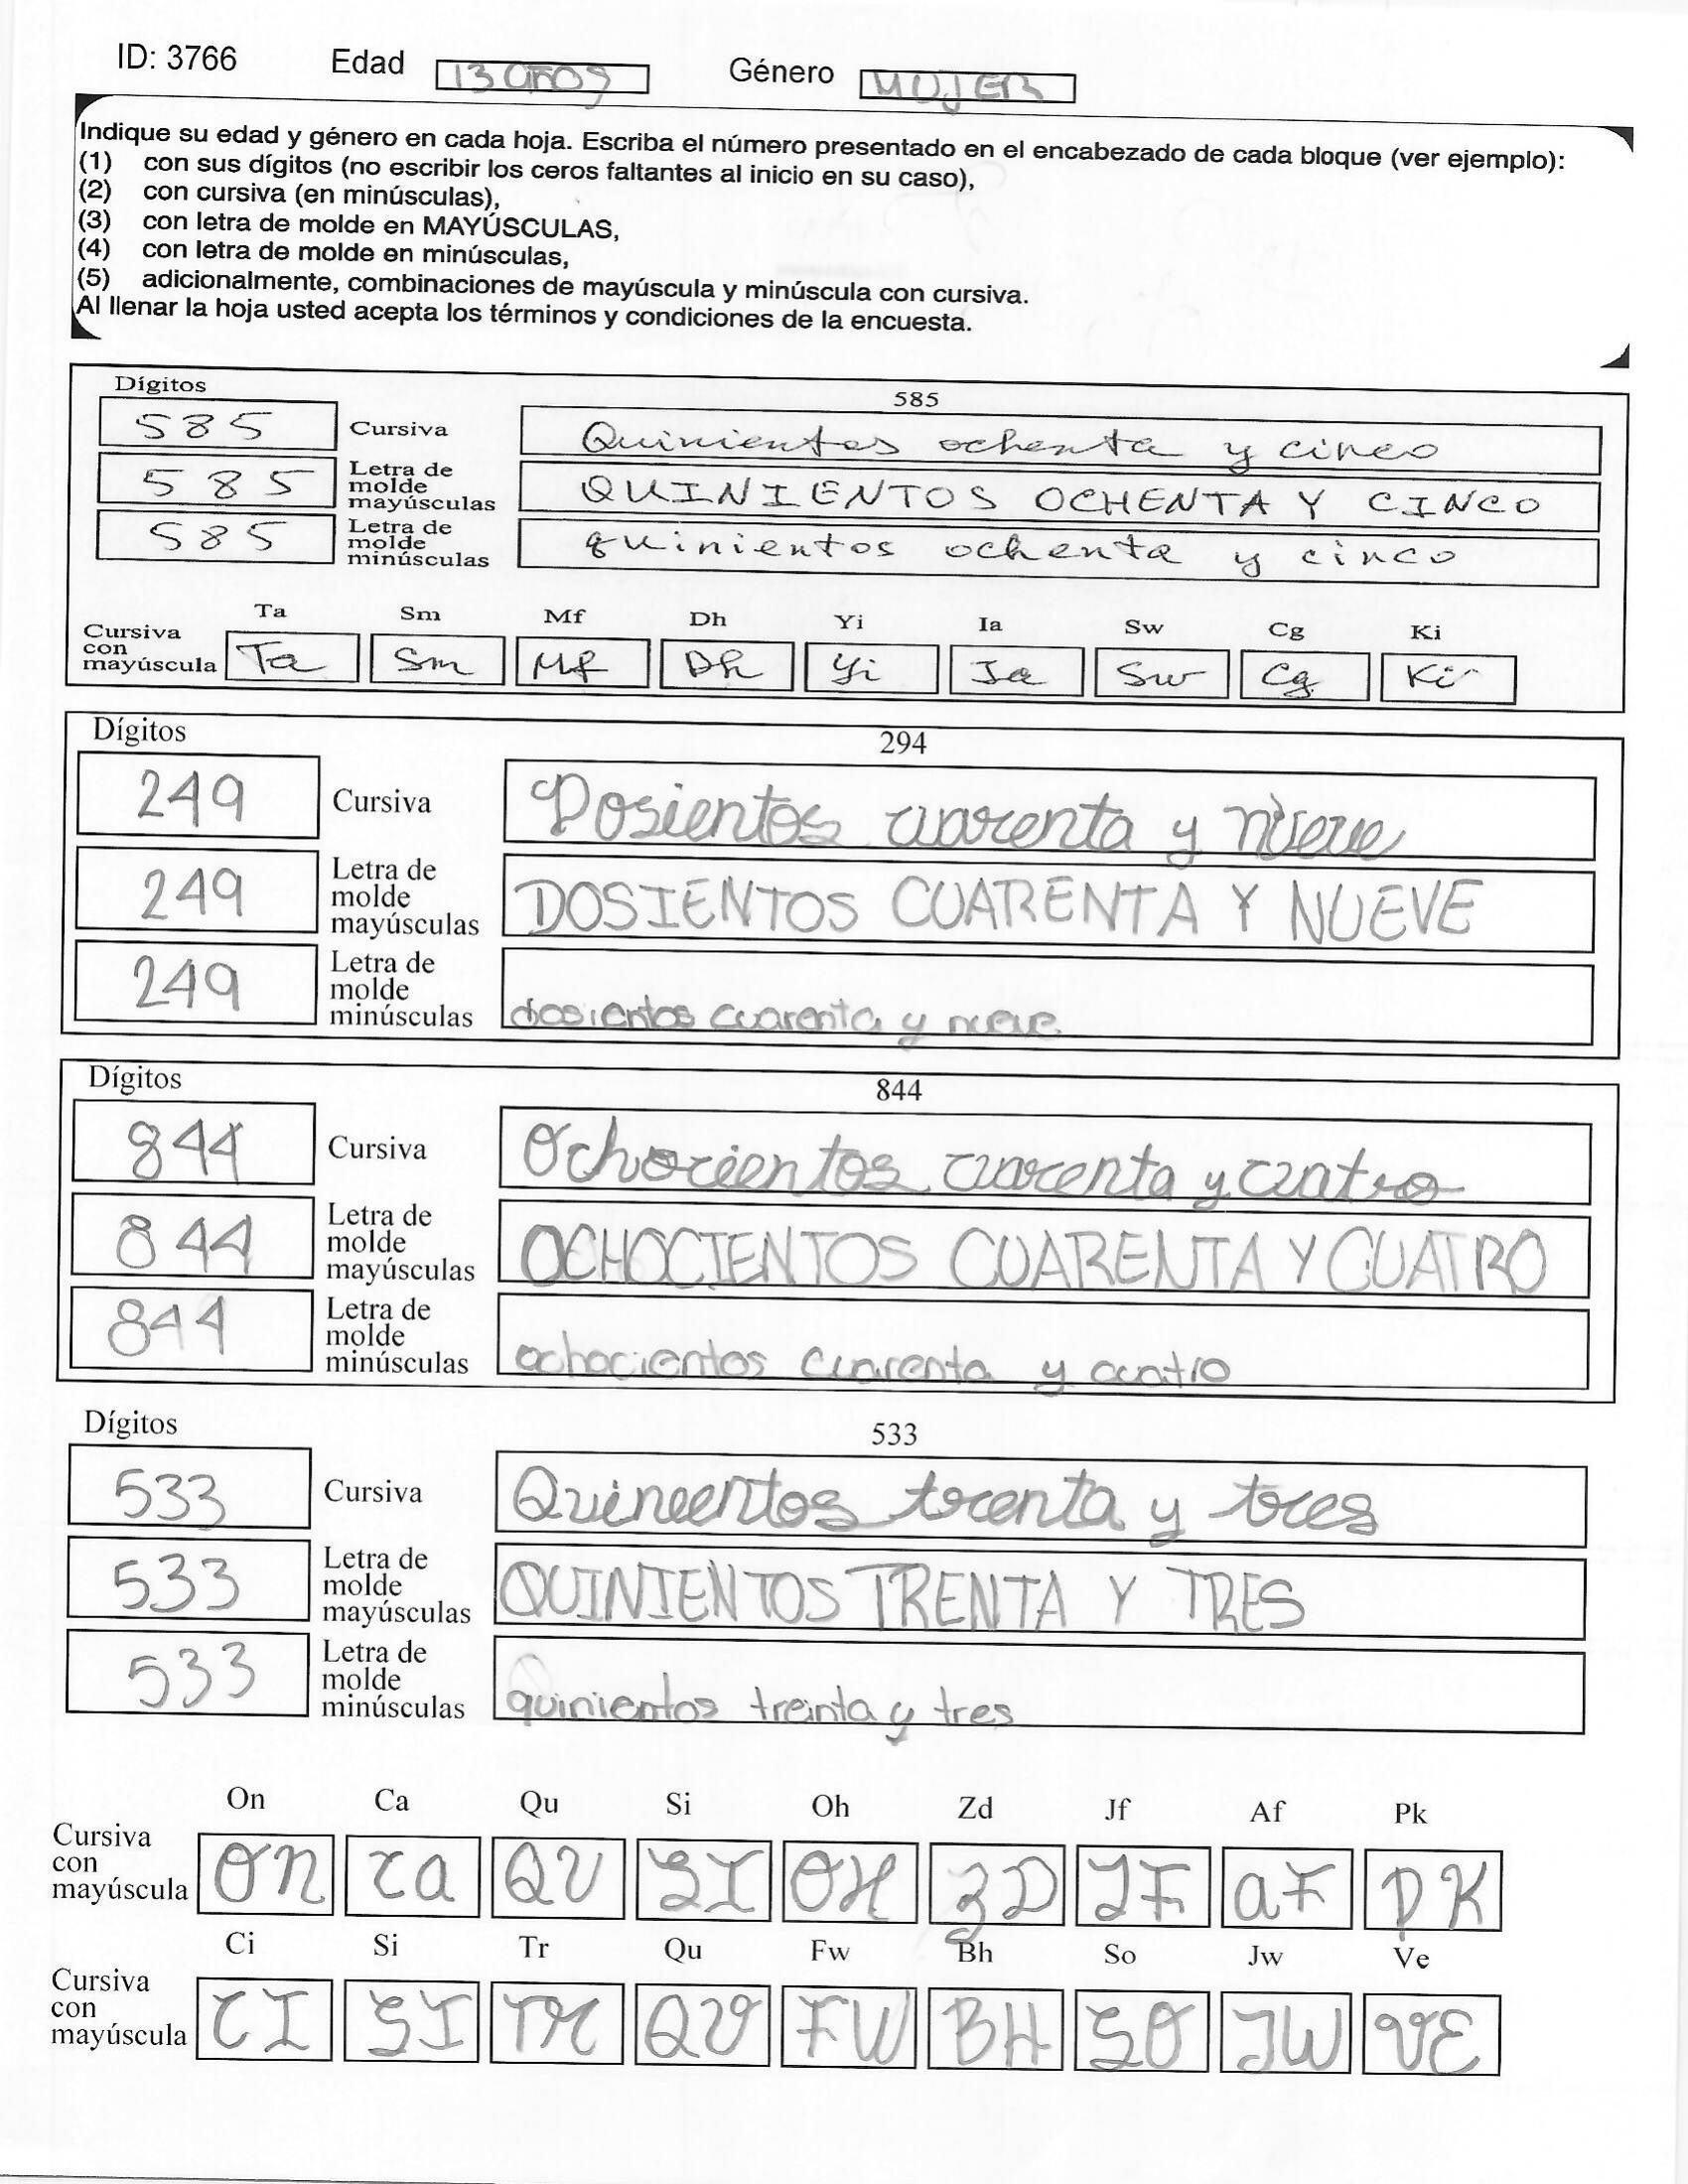 ID: 3766 Edad 13 años Género MUJER
Indique su edad y género en cada hoja. Escriba el número presentado en el encabezado de cada bloque (ver ejemplo):
(1) con sus dígitos (no escribir los ceros faltantes al inicio en su caso),
(2) con cursiva (en minúsculas),
(3) con letra de molde en MAYÚSCULAS,
(4) con letra de molde en minúsculas,
(5) adicionalmente, combinaciones de mayúscula y minúscula con cursiva.
Al llenar la hoja usted acepta los términos y condiciones de la encuesta.
Dígitos 585
585 Cursiva Quinientos ochenta y cinco
585 Letra de molde mayúsculas QUINIENTOS OCHENTA Y CINCO
585 Letra de molde minúsculas quinientos ochenta y cinco
Ta Sm Mf Dh Yi Ia Sw Cg Ki
Cursiva con mayúscula Ta Sm Mf Dh Yi Ia Sw Cg Ki
Dígitos 294
249 Cursiva Dosientos cuarenta y nueve
249 Letra de molde mayúsculas DOSIENTOS CUARENTA Y NUEVE
249 Letra de molde minúsculas dosientos cuarenta y nueve
Dígitos 844
844 Cursiva Ochocientos cuarenta y cuatro
844 Letra de molde mayúsculas OCHOCIENTOS CUARENTA Y CUATRO
844 Letra de molde minúsculas ochocientos cuarenta y cuatro
Dígitos 533
533 Cursiva Quineentos trenta y tres
533 Letra de molde mayúsculas QUINIENTOS TRENTA Y TRES
533 Letra de molde minúsculas quinientos treinta y tres
On Ca Qu Si Oh Zd Jf Af Pk
Cursiva con mayúscula ON CA QU SI OH ZD JF aF PK
Ci Si Tr Qu Fw Bh So Jw Ve
Cursiva con mayúscula CI SI TR QU FW BH SO JW VE